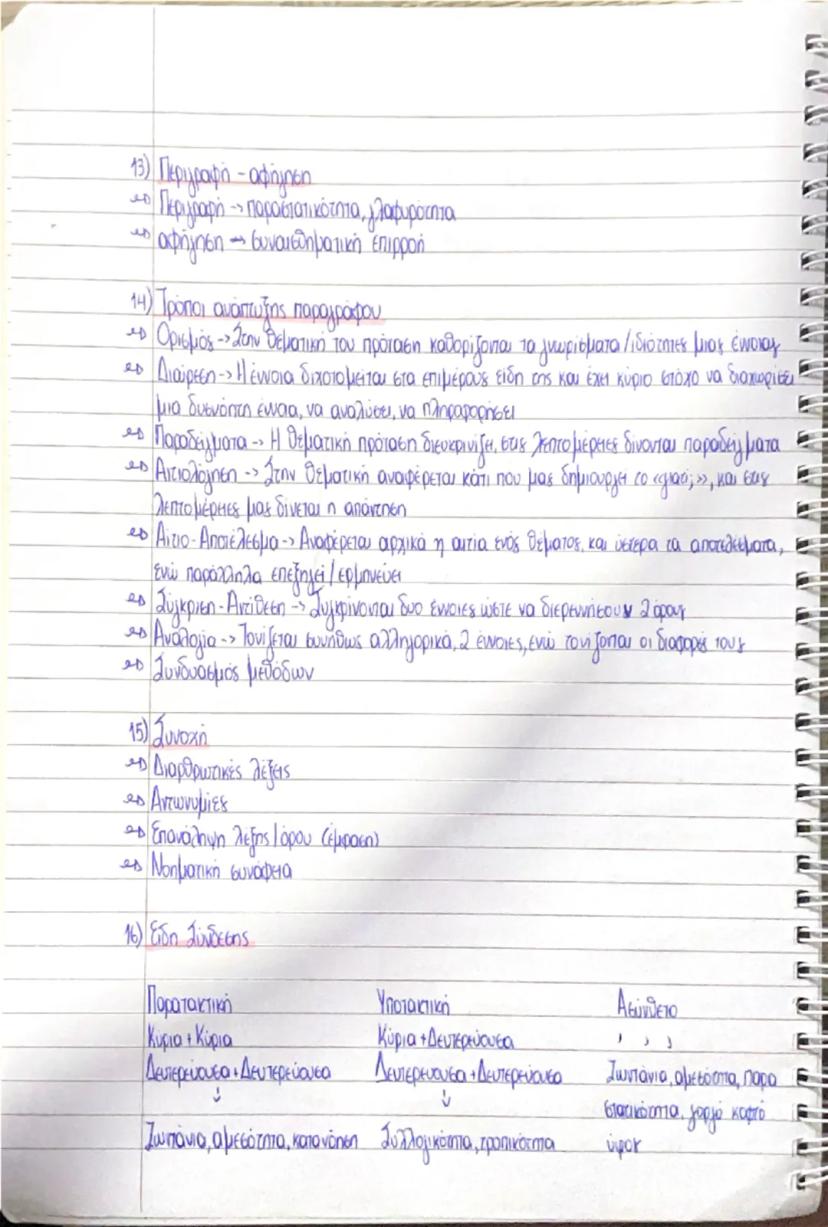 13) Περιγραφή - αφήγηση
→ Περιγραφή → παραστατικότητα, γλαφυρότητα
→ αφήγηση → συναισθηματική επιρροή
14) Τρόποι ανάπτυξης παραγράφου
→ Ορισμός → Στην θεματική του πρόταση καθορίζονται τα γνωρίσματα/ιδιότητες μιας έννοιας
→ Διαίρεση → Η έννοια διχοτομείται στα επιμέρους είδη της και έχει κύριο στόχο να διαχωρίσει
μια δυσνόητη έννοια, να αναλύσει, να πληροφορήσει
→ Παραδείγματα → Η θεματική πρόταση διευκρινίζει, στις λεπτομέρειες δίνονται παραδείγματα
→ Αιτιολόγηση → Στην θεματική αναφέρεται κάτι που μας δημιουργεί το «γιατί;», και στις
λεπτομέρειες μας δίνεται η απάντηση
→ Αίτιο-Αποτέλεσμα → Αναφέρεται αρχικά η αιτία ενός θέματος, και ύστερα τα αποτελέσματα,
ενώ παράλληλα επεξηγεί/ερμηνεύει
→ Σύγκριση-Αντίθεση → Συγκρίνονται δυο έννοιες ώστε να διερευνήσουν 2 όρους
→ Αναλογία → Τονίζεται συνήθως αλληγορικά, 2 έννοιες, ενώ τονίζονται οι διαφορές τους
→ Συνδυασμός μεθόδων
15) Συνοχή
→ Διαρθρωτικές λέξεις
→ Αντωνυμίες
→ Επανάληψη λέξης/όρου (έμφαση)
→ Νοηματική συνάφεια
16) Είδη Σύνδεσης
Παρατακτική Υποτακτική Ασύνδετο
Κύρια + Κύρια Κύρια + Δευτερεύουσα , , ,
Δευτερεύουσα + Δευτερεύουσα Δευτερεύουσα + Δευτερεύουσα Ζωντάνια, αμεσότητα, παρα
↓ ↓ στατικότητα, γοργό κοφτό
Ζωντάνια, αμεσότητα, κατανόηση Συλλογικότητα, τροπικότητα ύφος